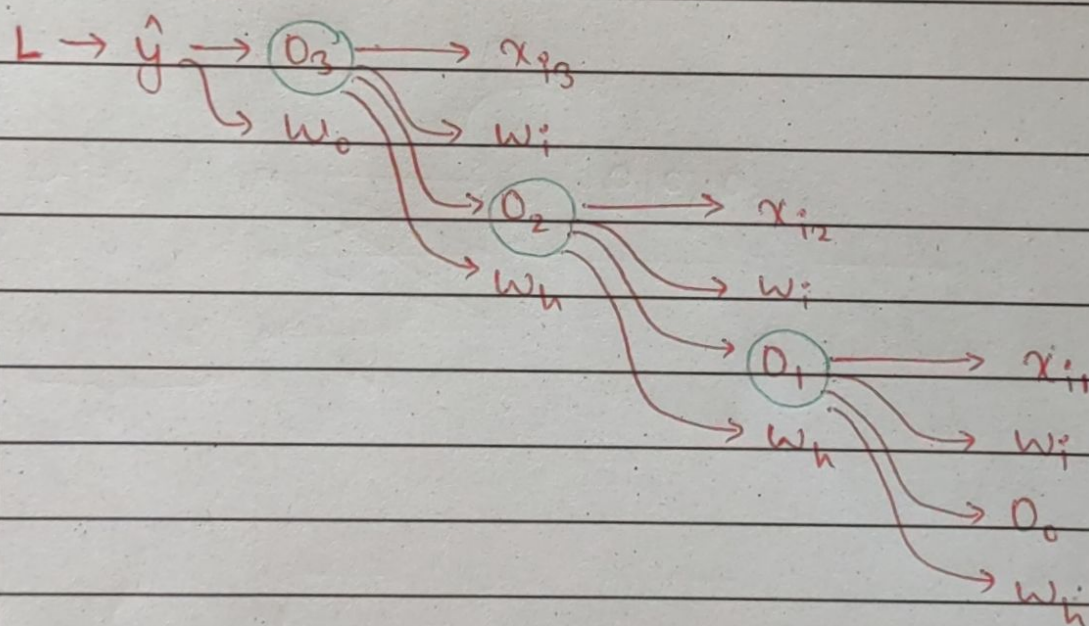 L → ŷ → O₃ → xᵢ₃
w₀ wᵢ
O₂ → xᵢ₂
wₕ wᵢ
O₁ → xᵢ₁
wₕ wᵢ
O₀
wₕ